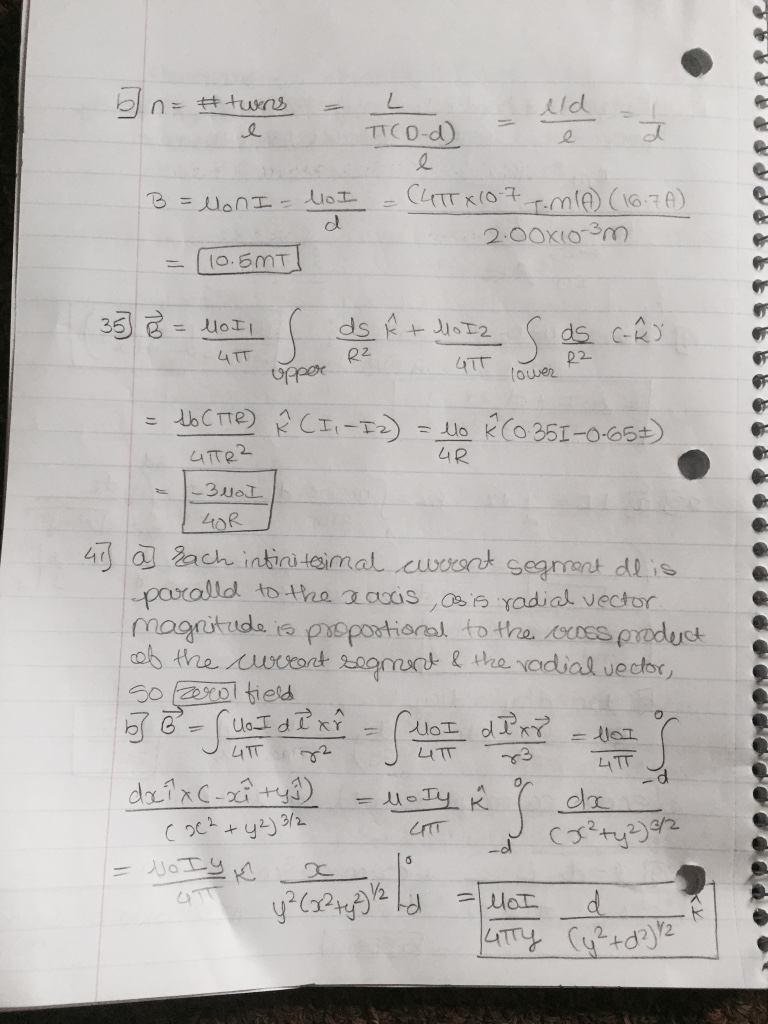 b] n = # turns / l = L / π(D-d) / l = l/d / l = 1/d
B = μ0nI = μ0I / d = (4π x10-7 T.m/A) (16.7A) / 2.00x10-3m
= 10.5mT
35] B⃗ = μ0I1 / 4π ∫upper ds / R2 k̂ + μ0I2 / 4π ∫lower ds / R2 (-k̂)
= μ0(πR) / 4πR2 k̂ (I1-I2) = μ0 / 4R k̂ (0.35I-0.65I)
= -3μ0I / 40R
41] a] Each infinitesimal current segment dl is
parallel to the x axis, as is radial vector
magnitude is proportional to the cross product
of the current segment & the radial vector,
so zero field
b] B⃗ = ∫ μ0I / 4π dl⃗ x r̂ / r2 = ∫ μ0I / 4π dl⃗ x r⃗ / r3 = μ0I / 4π ∫-d 0
dxî x (-xî + yĵ) / (x2 + y2)3/2 = μ0Iy / 4π k̂ ∫-d 0 dx / (x2+y2)3/2
= μ0Iy / 4π k̂ x / y2(x2+y2)1/2 |-d 0 = μ0I / 4πy d / (y2+d2)1/2 k̂